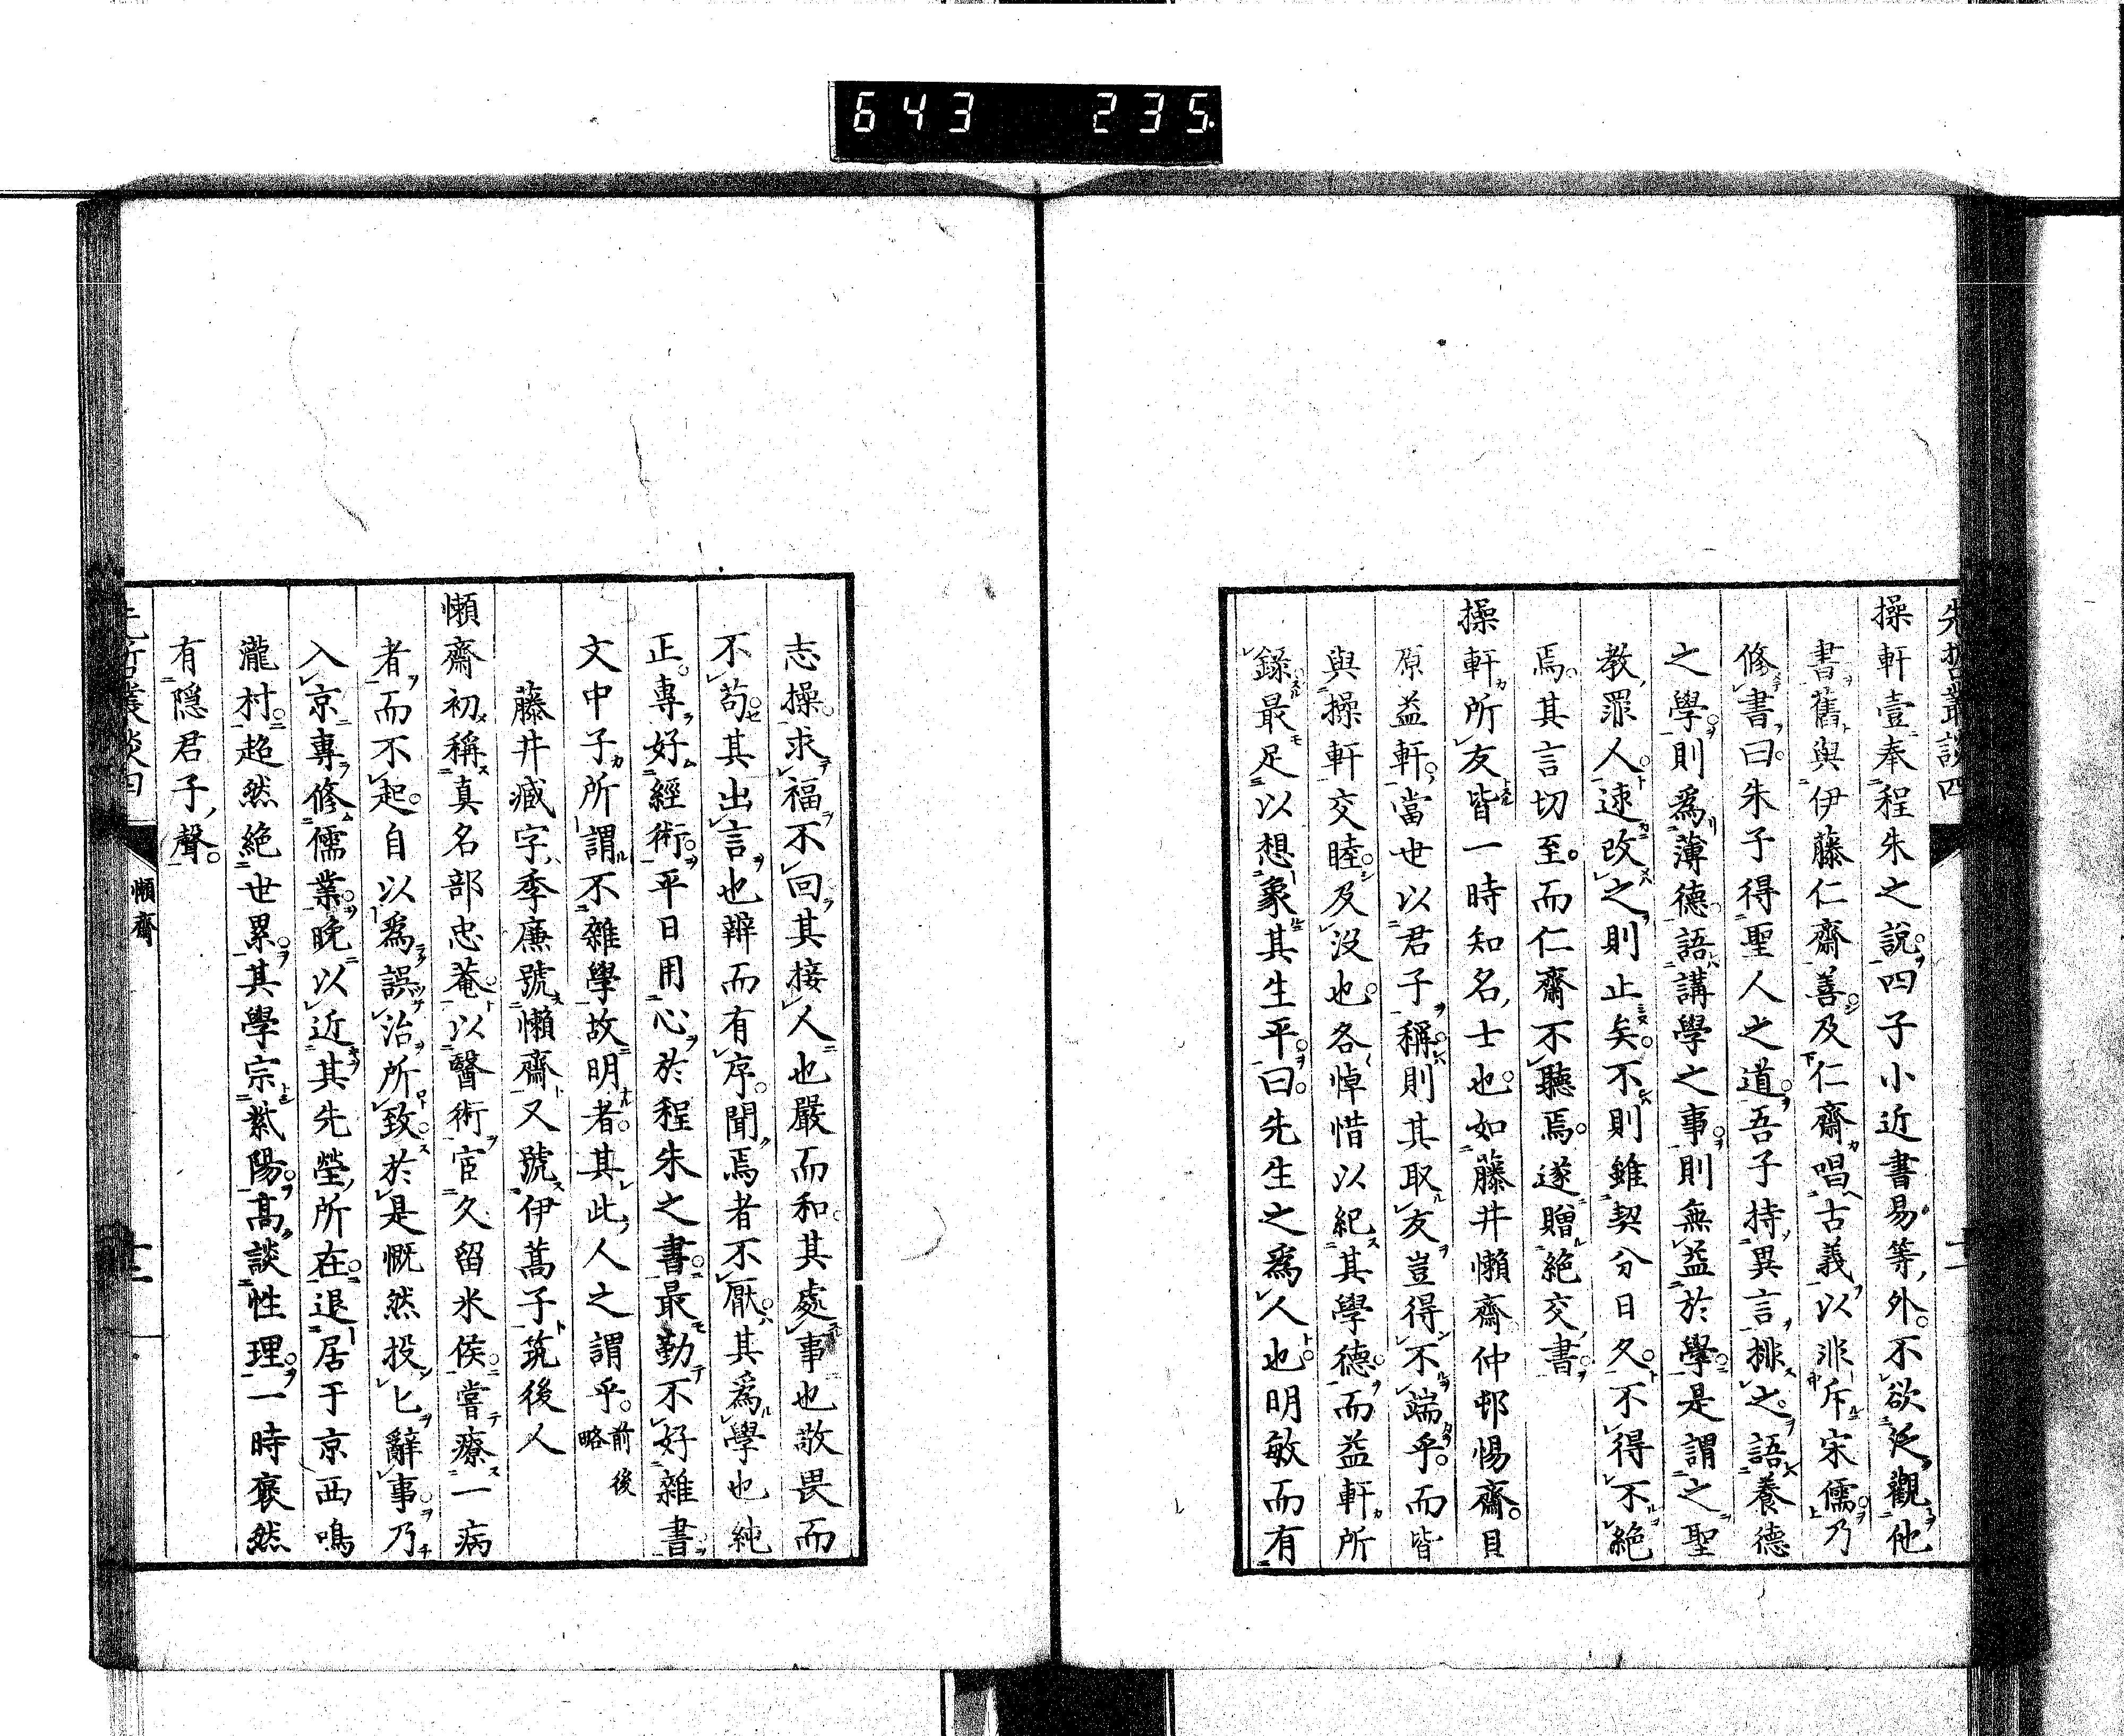 643 235
先哲叢談四
操軒壹奉程朱之說四子小近書易等外不欲泛觀他
書舊與伊藤仁齋善及仁齋唱古義以非斥宋儒乃
修書曰朱子得聖人之道吾子持異言排之語養德
之學則爲薄德語講學之事則無益於學是謂之聖
教罪人速改之則止矣不則雖契分日久不得不絕
焉其言切至而仁齋不聽焉遂贈絕交書
操軒所友皆一時知名士也如藤井懶齋仲邨惕齋貝
原益軒當世以君子稱則其取友豈得不端乎而皆
與操軒交睦及沒也各悼惜以紀其學德而益軒所
錄最足以想象其生平曰先生之爲人也明敏而有
志操求福不回其接人也嚴而和其處事也敬畏而
不苟其出言也辯而有序聞焉者不厭其爲學也純
正專好經術平日用心於程朱之書最勤不好雜書
文中子所謂不雜學故明者其此人之謂乎前後略
藤井臧字季廉號懶齋又號伊蒿子筑後人
懶齋初稱真名部忠菴以醫術宦久留米侯嘗療一病
者而不起自以爲誤治所致於是慨然投匕辭事乃
入京專修儒業晚以近其先塋所在退居于京西鳴
瀧村超然絕世累其學宗紫陽高談性理一時褒然
有隱君子聲
先哲叢談四
懶齋
十二